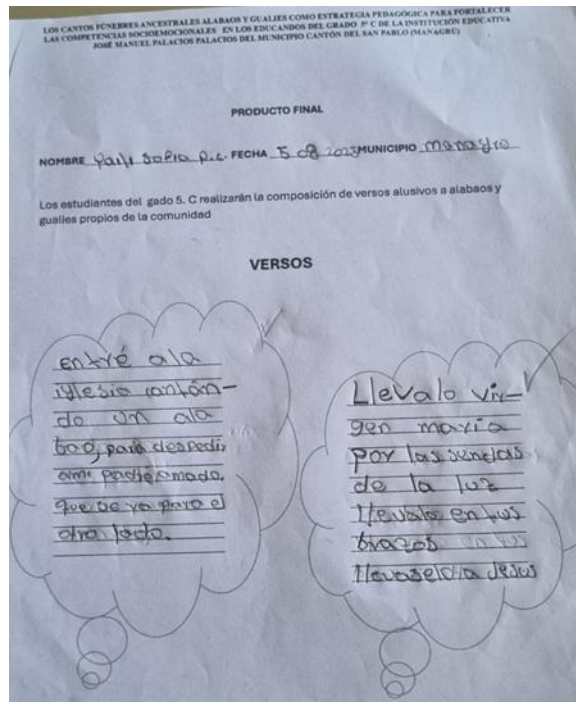 LOS CANTOS FÚNEBRES ANCESTRALES ALABAOS Y GUALIES COMO ESTRATEGIA PEDAGÓGICA PARA FORTALECER
LAS COMPETENCIAS SOCIOEMOCIONALES EN LOS EDUCANDOS DEL GRADO 5º C DE LA INSTITUCIÓN EDUCATIVA
JOSÉ MANUEL PALACIOS PALACIOS DEL MUNICIPIO CANTÓN DEL SAN PABLO (MANAGRÚ)
PRODUCTO FINAL
NOMBRE sofia p.c. FECHA 5 08 2025 MUNICIPIO managro
Los estudiantes del gado 5. C realizarán la composición de versos alusivos a alabaos y
gualies propios de la comunidad
VERSOS
entré ala
iglesia cantan-
do un ala
bao, para despedir
ami padre amado,
que se va para el
otro lado.
Llevalo vir-
gen maria
por las sendas
de la luz
llevalo en tus
brazos
llevaselo a Jesus